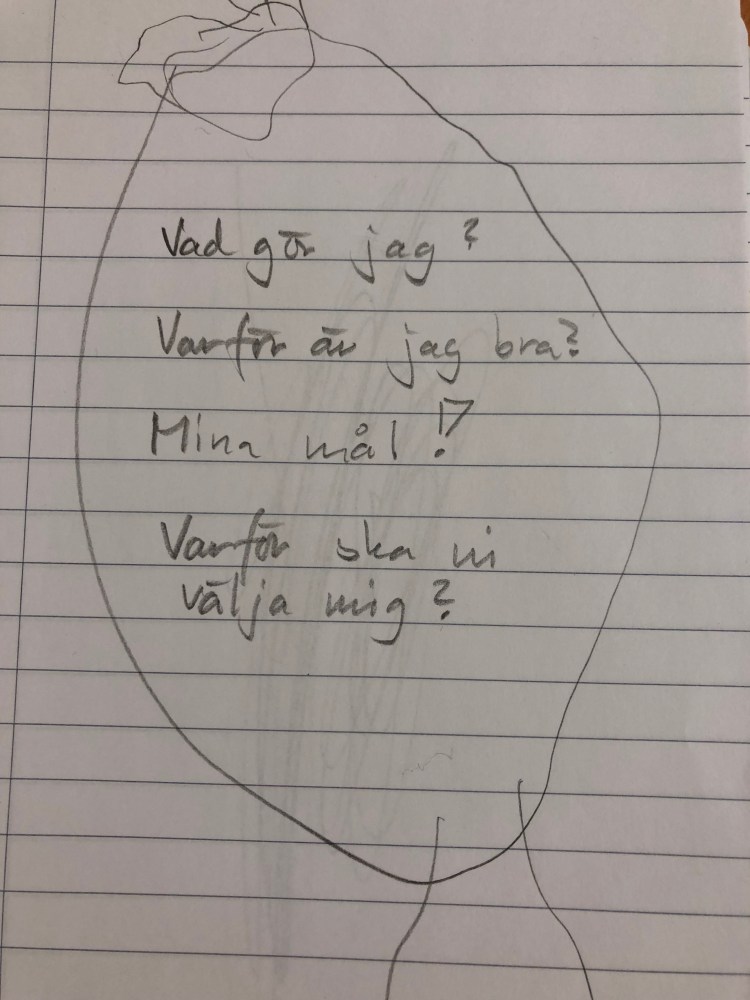 Vad gör jag?
Varför är jag bra?
Mina mål!?
Varför ska ni
välja mig?